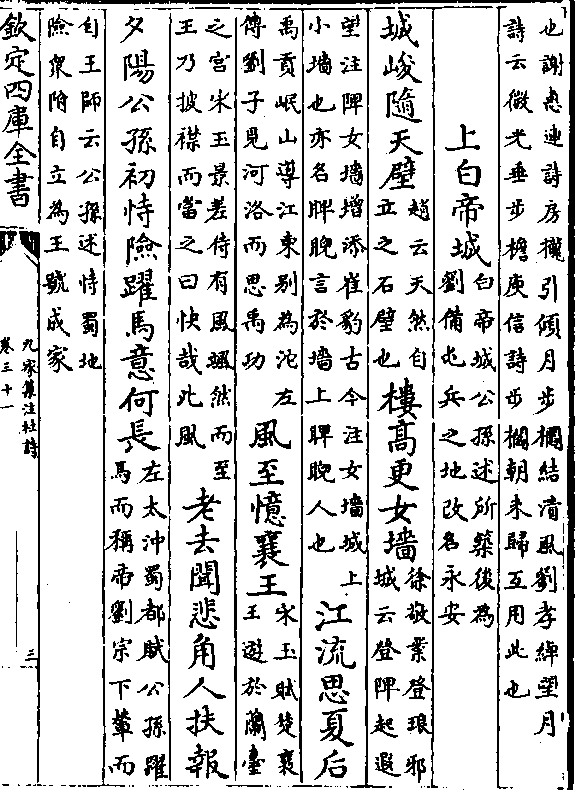 也謝惠連詩房櫳引傾月步櫩結清風劉孝綽望月
詩云微光垂步檐庾信詩步櫩朝未歸互用此也
上白帝城白帝城公孫述所築後為
劉備屯兵之地改名永安
城峻隨天壁趙云天然自
立之石壁也樓高更女墻徐敬業登琅邪
城云登陴起遐
望注陴女墻增添崔豹古今注女墻城上
小墻也亦名睥睨言於墻上睥睨人也江流思夏后
禹貢岷山導江東别為沱左
傳劉子見河洛而思禹功風至憶襄王宋玉賦楚襄
王遊於蘭臺
之宫宋玉景差侍有風颯然而至
王乃披襟而當之曰快哉此風老去聞悲角人扶報
夕陽公孫初恃險躍馬意何長左太冲蜀都賦公孫躍
馬而稱帝劉宗下輦而
自王師云公孫述恃蜀地
險衆附自立為王號成家
欽定四庫全書
九家集注杜詩
卷三十一
三